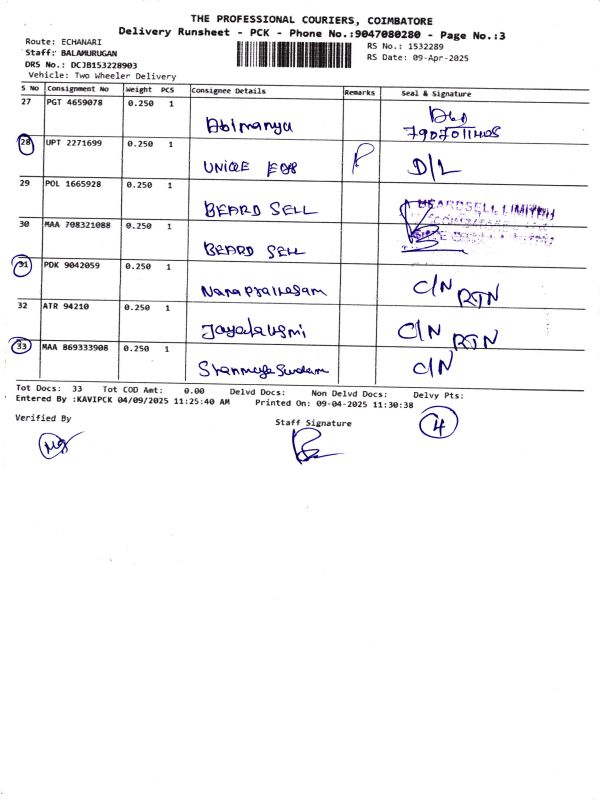 THE PROFESSIONAL COURIERS, COIMBATORE
Delivery Runsheet - PCK - Phone No.:9047080280 - Page No.:3
Route: ECHANARI
RS No.: 1532289
Staff: BALAMURUGAN
RS Date: 09-Apr-2025
DRS No.: DCJB153228903
Vehicle: Two Wheeler Delivery
S No Consignment No Weight PCS Consignee Details Remarks Seal & Signature
27 PGT 4659078 0.250 1
Abimanyu 7907011405
28 UPT 2271699 0.250 1
UNIQE P D/L
29 POL 1665928 0.250 1
BEARD SELL BEARDSELL LIMITED
30 MAA 708321088 0.250 1
BEARD SELL
31 PDK 9042059 0.250 1
C/N RTN
32 ATR 94210 0.250 1
C/N RTN
33 MAA 869333908 0.250 1
C/N
Tot Docs: 33 Tot COD Amt: 0.00 Delvd Docs: Non Delvd Docs: Delvy Pts:
Entered By :KAVIPCK 04/09/2025 11:25:40 AM Printed On: 09-04-2025 11:30:38
4
Verified By Staff Signature